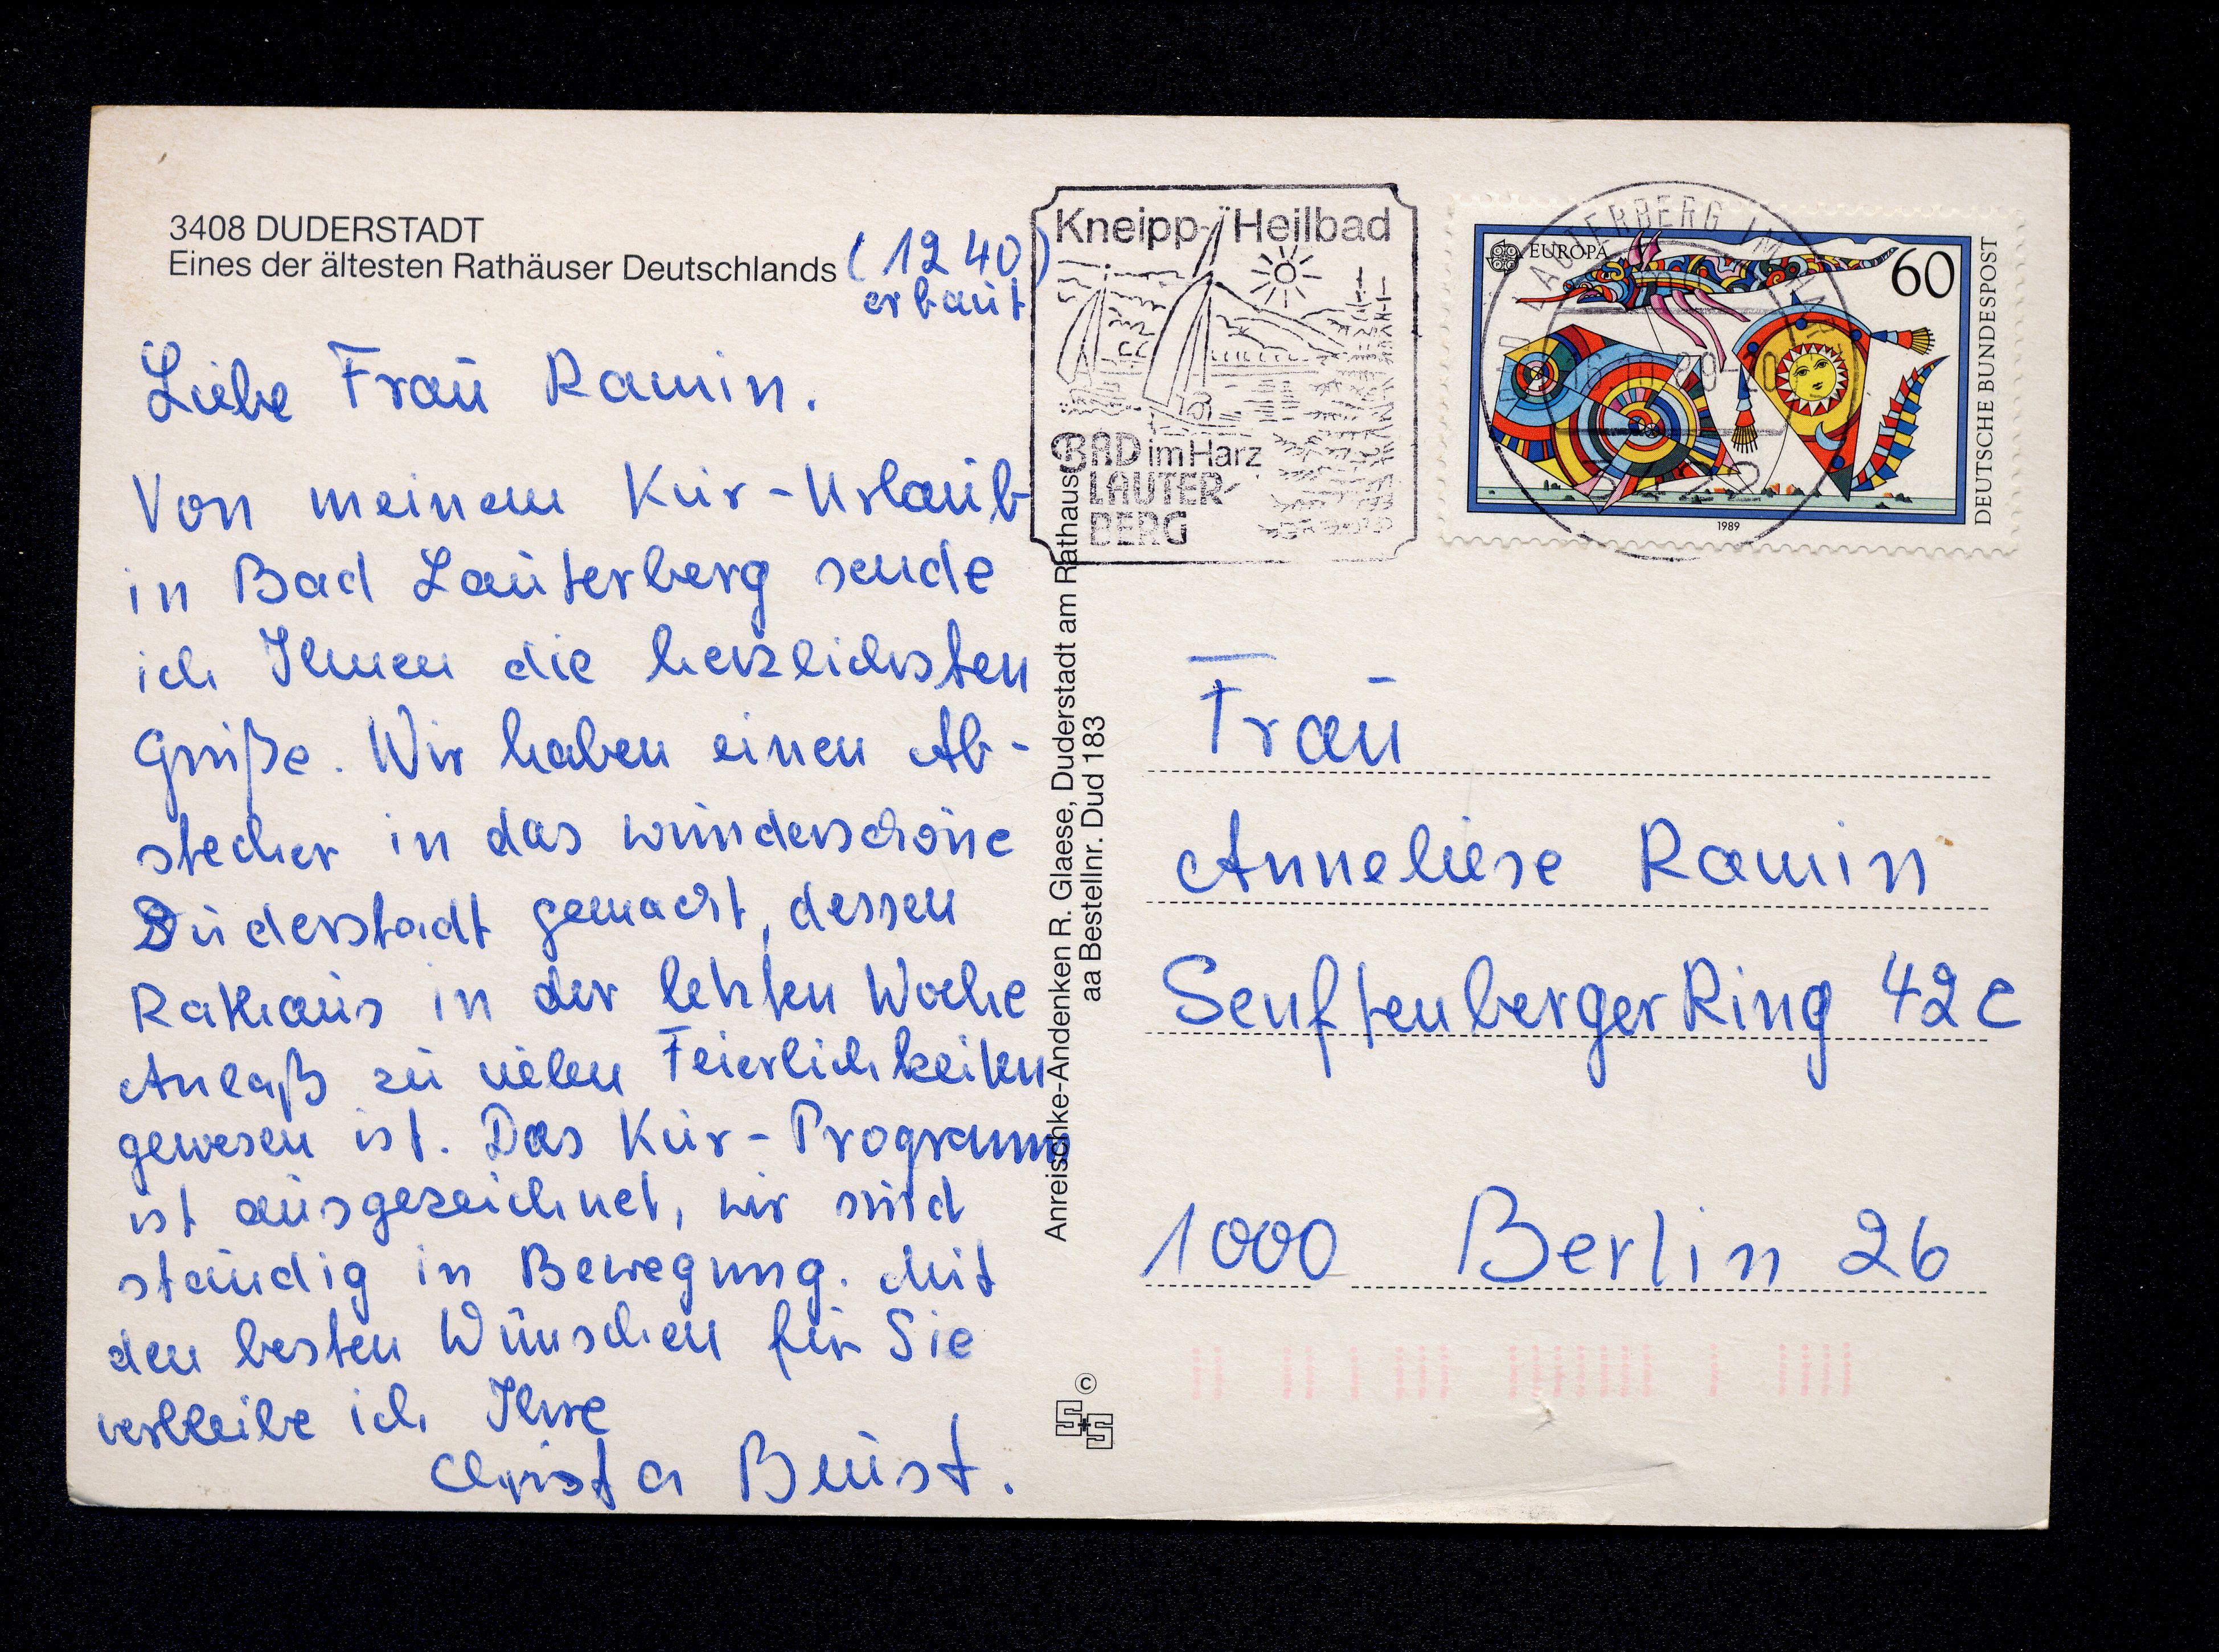 3408 DUDERSTADT
Eines der ältesten Rathäuser Deutschlands (1240)
erbaut
Liebe Frau Ramin.
Von meinem Kur-Urlaub
in Bad Lauterberg sende
ich Ihnen die herzlichsten
Grüße. Wir haben einen Ab-
stecher in das wunderschöne
Duderstadt gemacht, dessen
Rathaus in der letzten Woche
Anlaß zu vielen Feierlichkeiten
gewesen ist. Das Kur-Programm
ist ausgezeichnet, wir sind
ständig in Bewegung. Mit
den besten Wünschen für Sie
verbleibe ich Ihre
Christa Beust.
Anreischke-Andenken R. Glaese, Duderstadt am Rathaus
aa Bestellnr. Dud 183
©
S+S
Kneipp-Heilbad
BAD im Harz
LAUTER-
BERG
EUROPA
60
DEUTSCHE BUNDESPOST
1989
LAUTERBERG IM HARZ
3422
Frau
Anneliese Ramin
Senftenberger Ring 42c
1000 Berlin 26